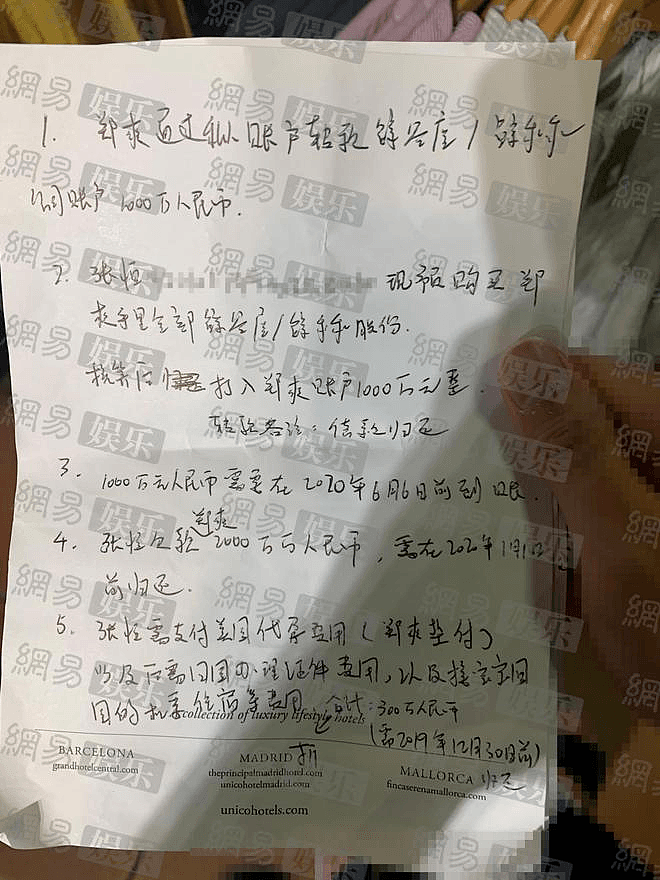 1. 郑爽通过私人账户转款 /
公司账户 1000万人民币.
2. 张恒 现予以购买郑
爽手里全部 / 股份.
核算后 打入郑爽账户1000万元整.
转款备注：借款归还
3. 1000万元人民币需要在2020年6月6日前到账.
4. 张恒欠款郑爽2000万元人民币，需在2020年1月1日
前归还.
5. 张恒需支付美国代孕费用（郑爽垫付）
以及后需回国办理证件费用，以及接宝宝回
国的机票住宿等费用 合计：300万人民币
collection of luxury lifestyle hotels
（需2019年12月30日前）
归还
BARCELONA
grandhotelcentral.com
MADRID
theprincipalmadridhotel.com
unicohotelmadrid.com
MALLORCA
fincaserenamallorca.com
unicohotels.com
網易娱乐